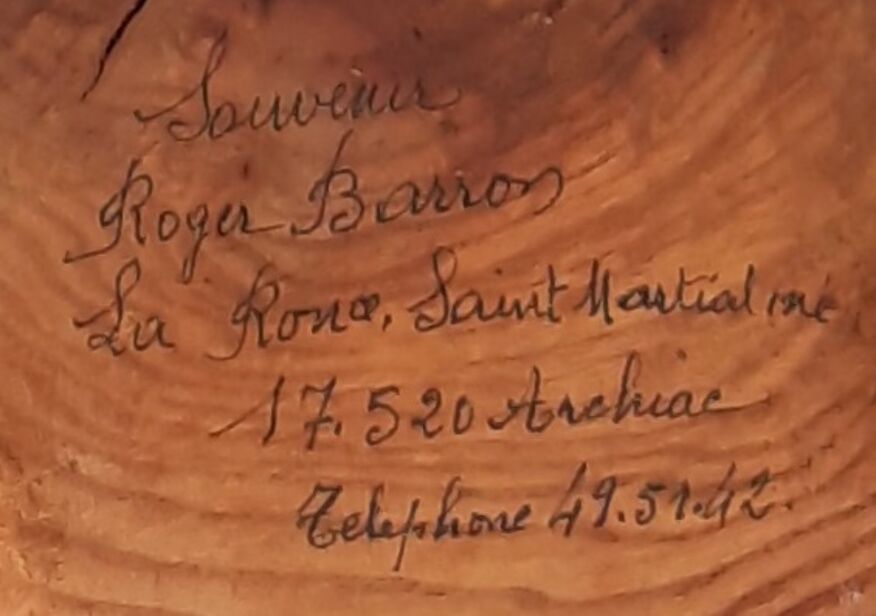 Souvenir
Roger Barron
La Rone, Saint Martial
17.520 Archiac
Telephone 49.51.42.